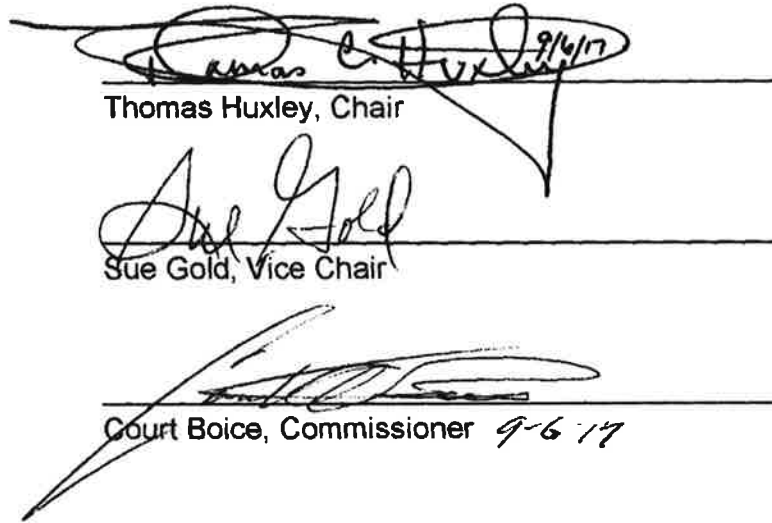 Thomas C. Huxley 9/6/17
Thomas Huxley, Chair
Sue Gold
Sue Gold, Vice Chair
Court Boice, Commissioner 9-6-17